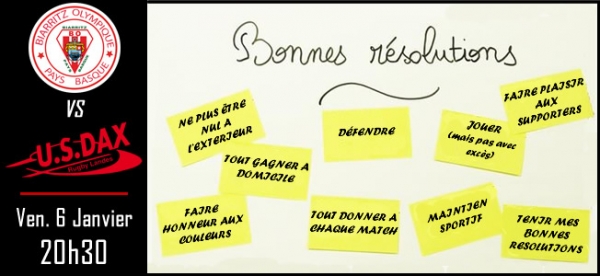 BIARRITZ OLYMPIQUE
BIARRITZ
BO
PAYS BASQUE
VS
U.S.DAX
Rugby Landes
Ven. 6 Janvier
20h30
Bonnes résolutions
NE PLUS ÊTRE
NUL A
L'EXTERIEUR
TOUT GAGNER A
DOMICILE
DÉFENDRE
JOUER
(mais pas avec
excès)
FAIRE PLAISIR
AUX
SUPPORTERS
FAIRE
HONNEUR AUX
COULEURS
TOUT DONNER A
CHAQUE MATCH
MAINTIEN
SPORTIF
TENIR MES
BONNES
RESOLUTIONS